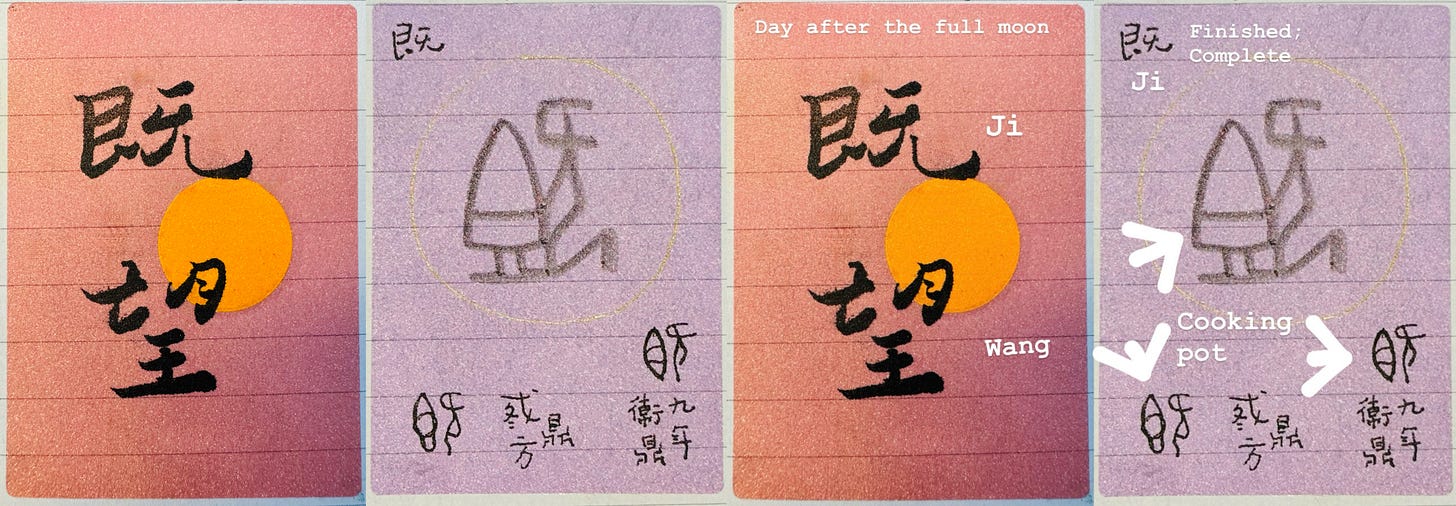 既
望
既
方鼎
九年
衛鼎
Day after the full moon
既
Ji
望
Wang
既
Finished;
Complete
Ji
Cooking
pot
方鼎
九年
衛鼎